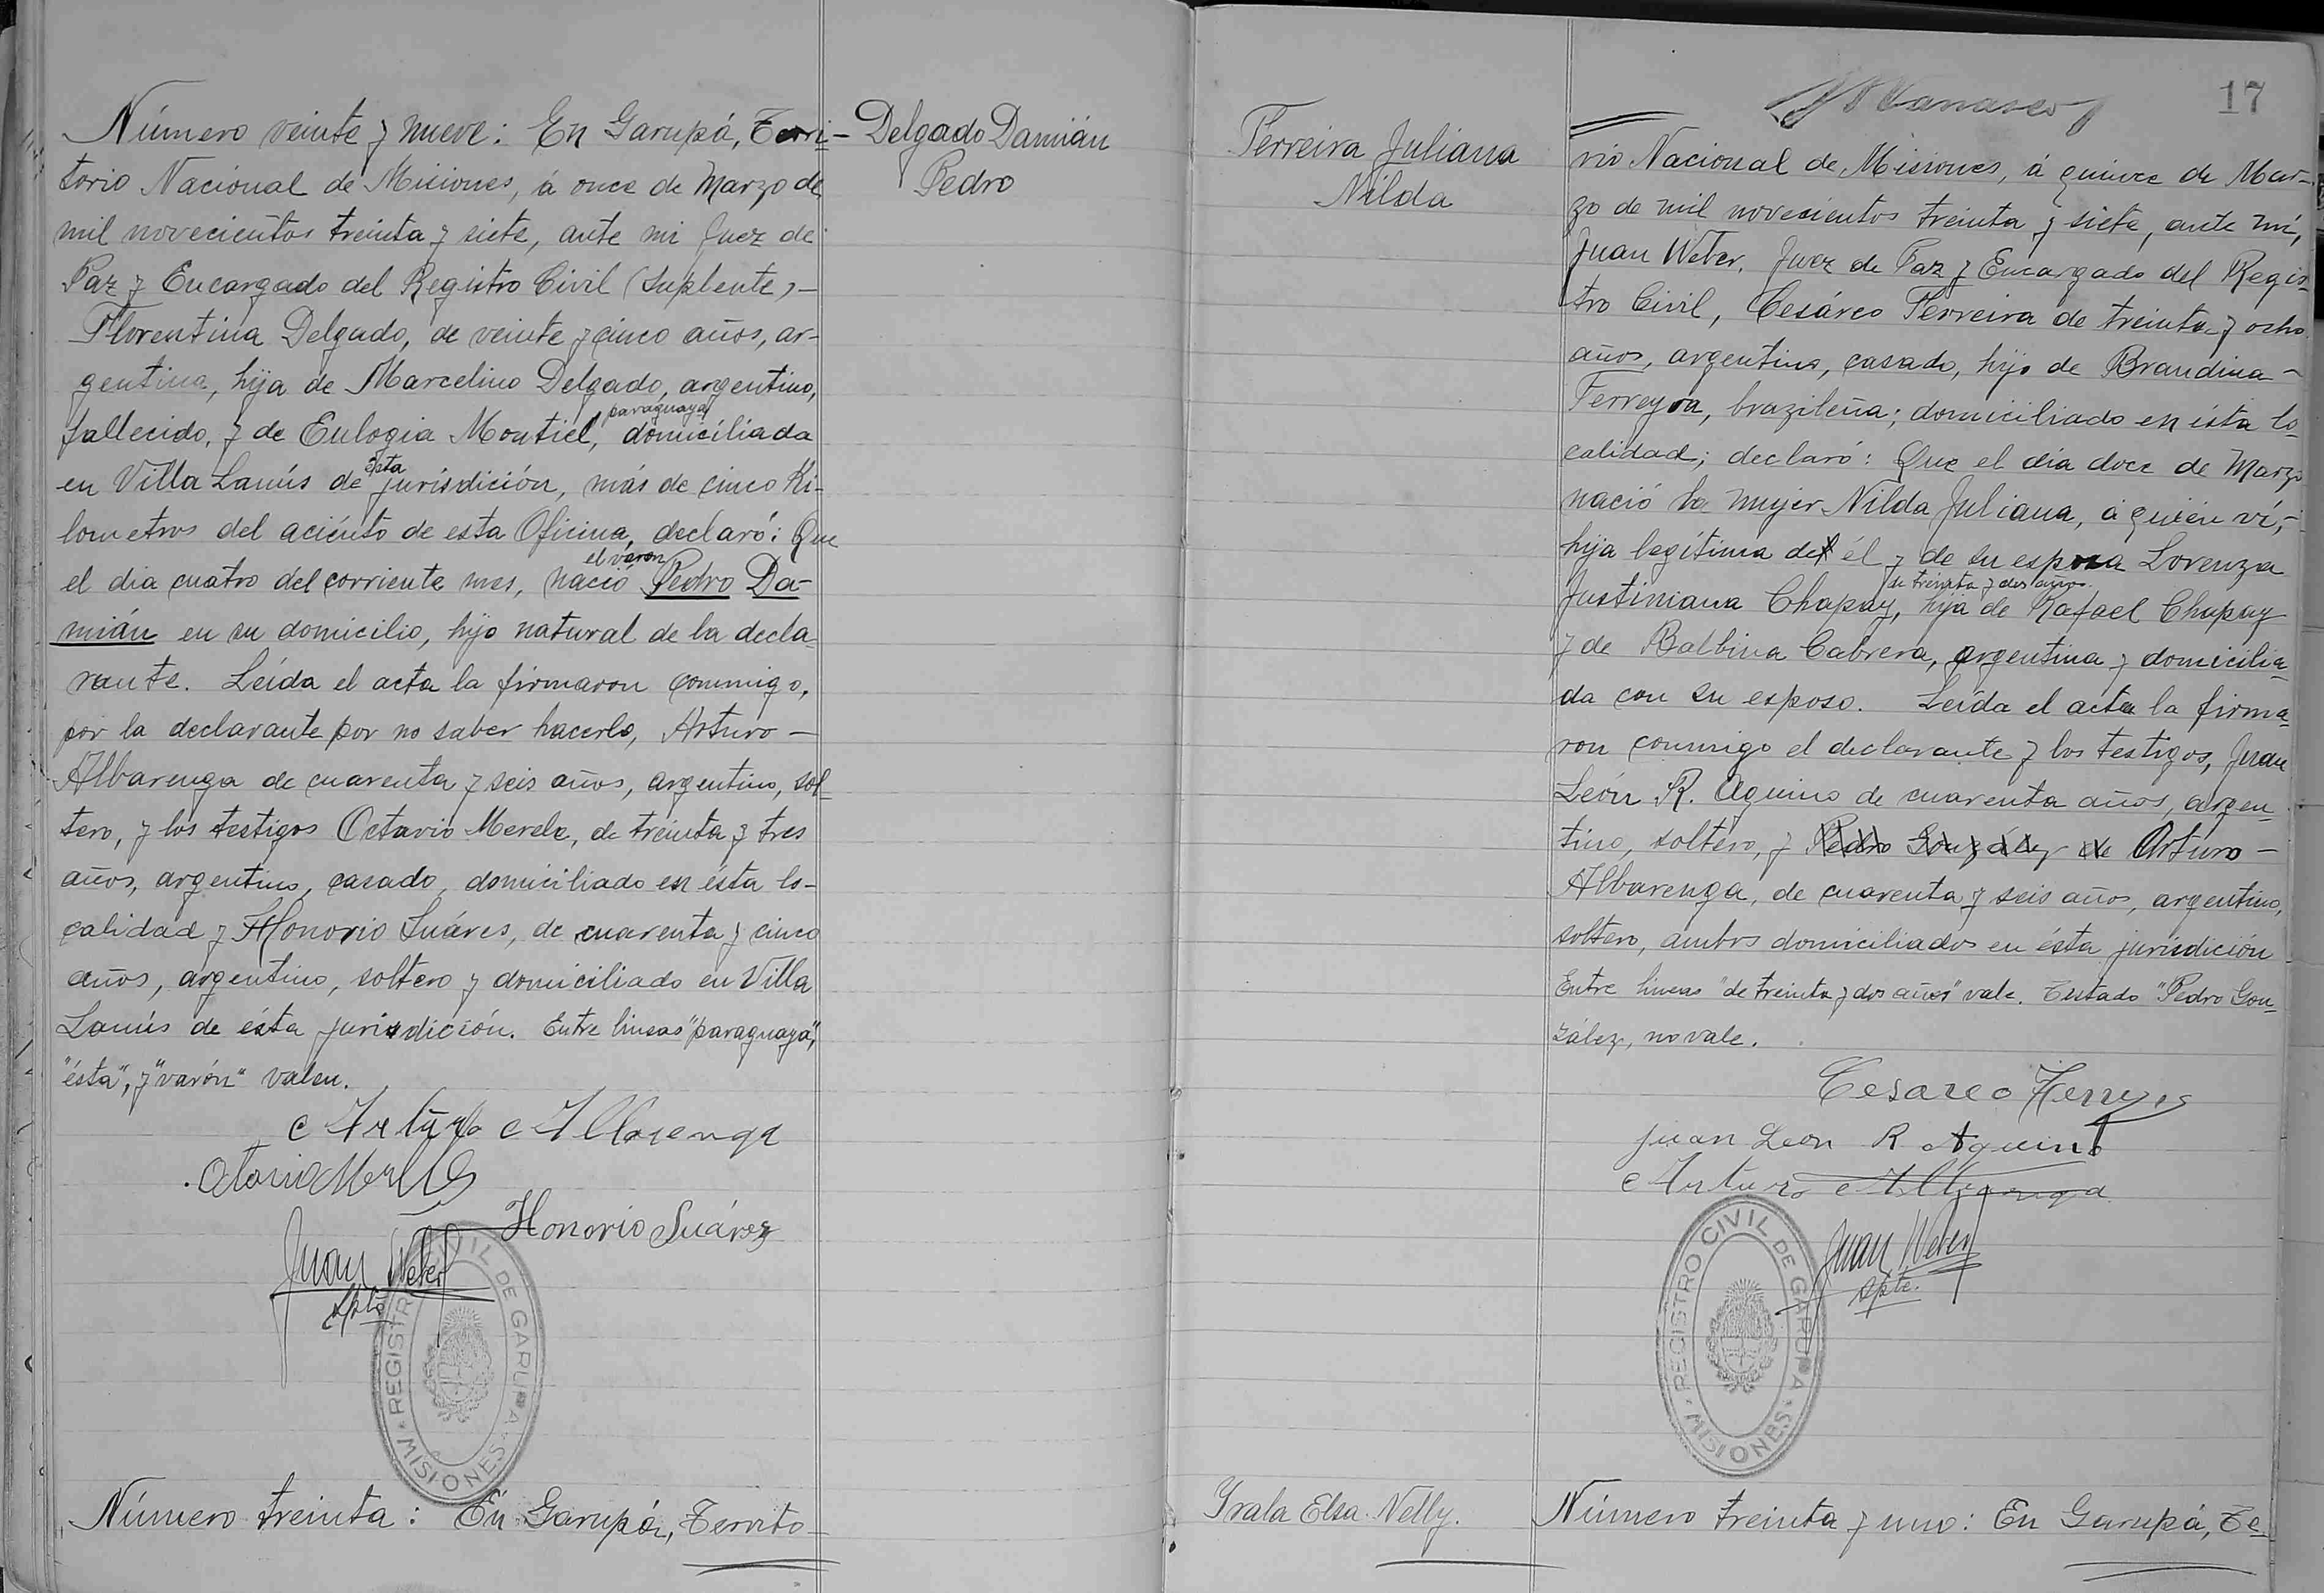 Número veinte y nueve: En Garupá, Terri-
torio Nacional de Misiones, á once de Marzo de
mil novecientos treinta y siete, ante mi Juez de
Paz y Encargado del Registro Civil (suplente)-
Florentina Delgado, de veinte y cinco años, ar-
gentina, hija de Marcelino Delgado, argentino,
paraguaya
fallecido, y de Eulogia Montiel, domiciliada
ésta
en Villa Lanús de jurisdición, más de cinco Ki-
lometros del aciénto de esta Oficina, declaró: Que
el varon
el dia cuatro del corriente mes, nació Pedro Da-
mián en su domicilio, hijo natural de la decla-
rante. Leída el acta la firmaron conmigo,
por la declarante por no saber hacerlo, Arturo -
Albarenga de cuarenta y seis años, argentino, sol-
tero, y los testigos Octavio Merele, de treinta y tres
años, argentino, casado, domiciliado en ésta lo-
calidad y Honorio Suáres, de cuarenta y cinco
años, argentino, soltero y domiciliado en Villa
Lanús de ésta jurisdición. Entre lineas "paraguaya",
"ésta", y "varón" valen.
Arturo Albarenga
Honorio Suárez
Juan Weber
Splte
REGISTRO CIVIL DE GARUPA
MISIONES
Número treinta: En Garupá, Territo-
Delgado Damián
Pedro
Ferreira Juliana
Nilda
Irala Elsa Nelly.
17
rio Nacional de Misiones, á quince de Mar-
zo de mil novecientos treinta y siete, ante mí,
Juan Weber, Juez de Paz y Encargado del Regis-
tro Civil, Cesáreo Ferreira de treinta y ocho
años, argentino, casado, hijo de Brandina -
Ferreyra, brazileña; domiciliado en ésta lo-
calidad; declaró: Que el día doce de Marzo
nació la mujer Nilda Juliana, á quién ví,-
hija legítima de él y de su esposa Lorenza
de treinta y dos años.
Justiniana Chapay, hija de Rafael Chapay
y de Balbina Cabrera, argentina y domicilia-
da con su esposo. Leída el acta la firma-
ron conmigo el declarante y los testigos, Juan
León R. Aquino de cuarenta años, argen-
tino, soltero, y Pedro González de Arturo -
Albarenga, de cuarenta y seis años, argentino,
soltero, ambos domiciliados en ésta jurisdición
Entre lineas "de treinta y dos años" vale. Testado "Pedro Gon-
zález, no vale.
Cesareo Ferreyra
Juan Leon R Aquino
Arturo Albarenga
Juan Weber
Splte.
REGISTRO CIVIL DE GARUPA
MISIONES
Número treinta y uno: En Garupá, Te-